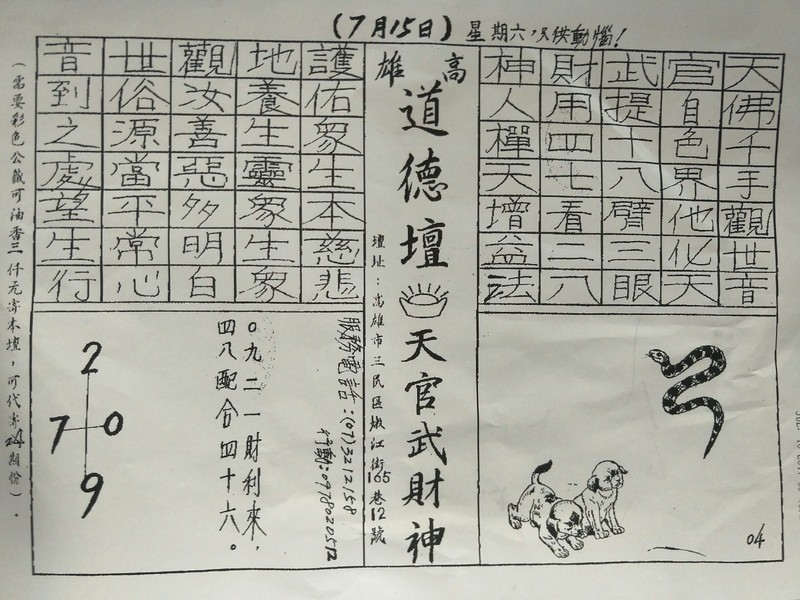 (7月15日) 星期六，只供動惱！
天佛千手觀世音
官自色界他化天
武提十八臂三眼
財用四七看二八
神人樿天增益法
04
高雄
道德壇 天官武財神
壇址：高雄市三民區嫩江街165巷12號
護佑眾生本慈悲
地養生靈眾生眾
觀汝善惡多明白
世俗源當平常心
音到之處望生行
服務電話：(07)3212158
行動：0978020512
○九二一財利來，
四八配合四十六。
2
7 0
9
（需要彩色公籤可油香三仟元寄本壇，可代寄期份）。